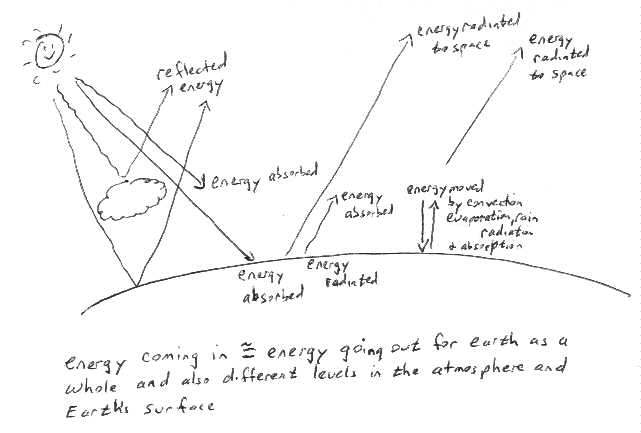 energy radiated
to space
energy
radiated
to space
reflected
energy
energy absorbed
energy
absorbed
energy moved
by convection
evaporation, rain
radiation
+ absorption
energy
absorbed
energy
radiated
energy coming in ≅ energy going out for earth as a
whole and also different levels in the atmosphere and
Earth's surface